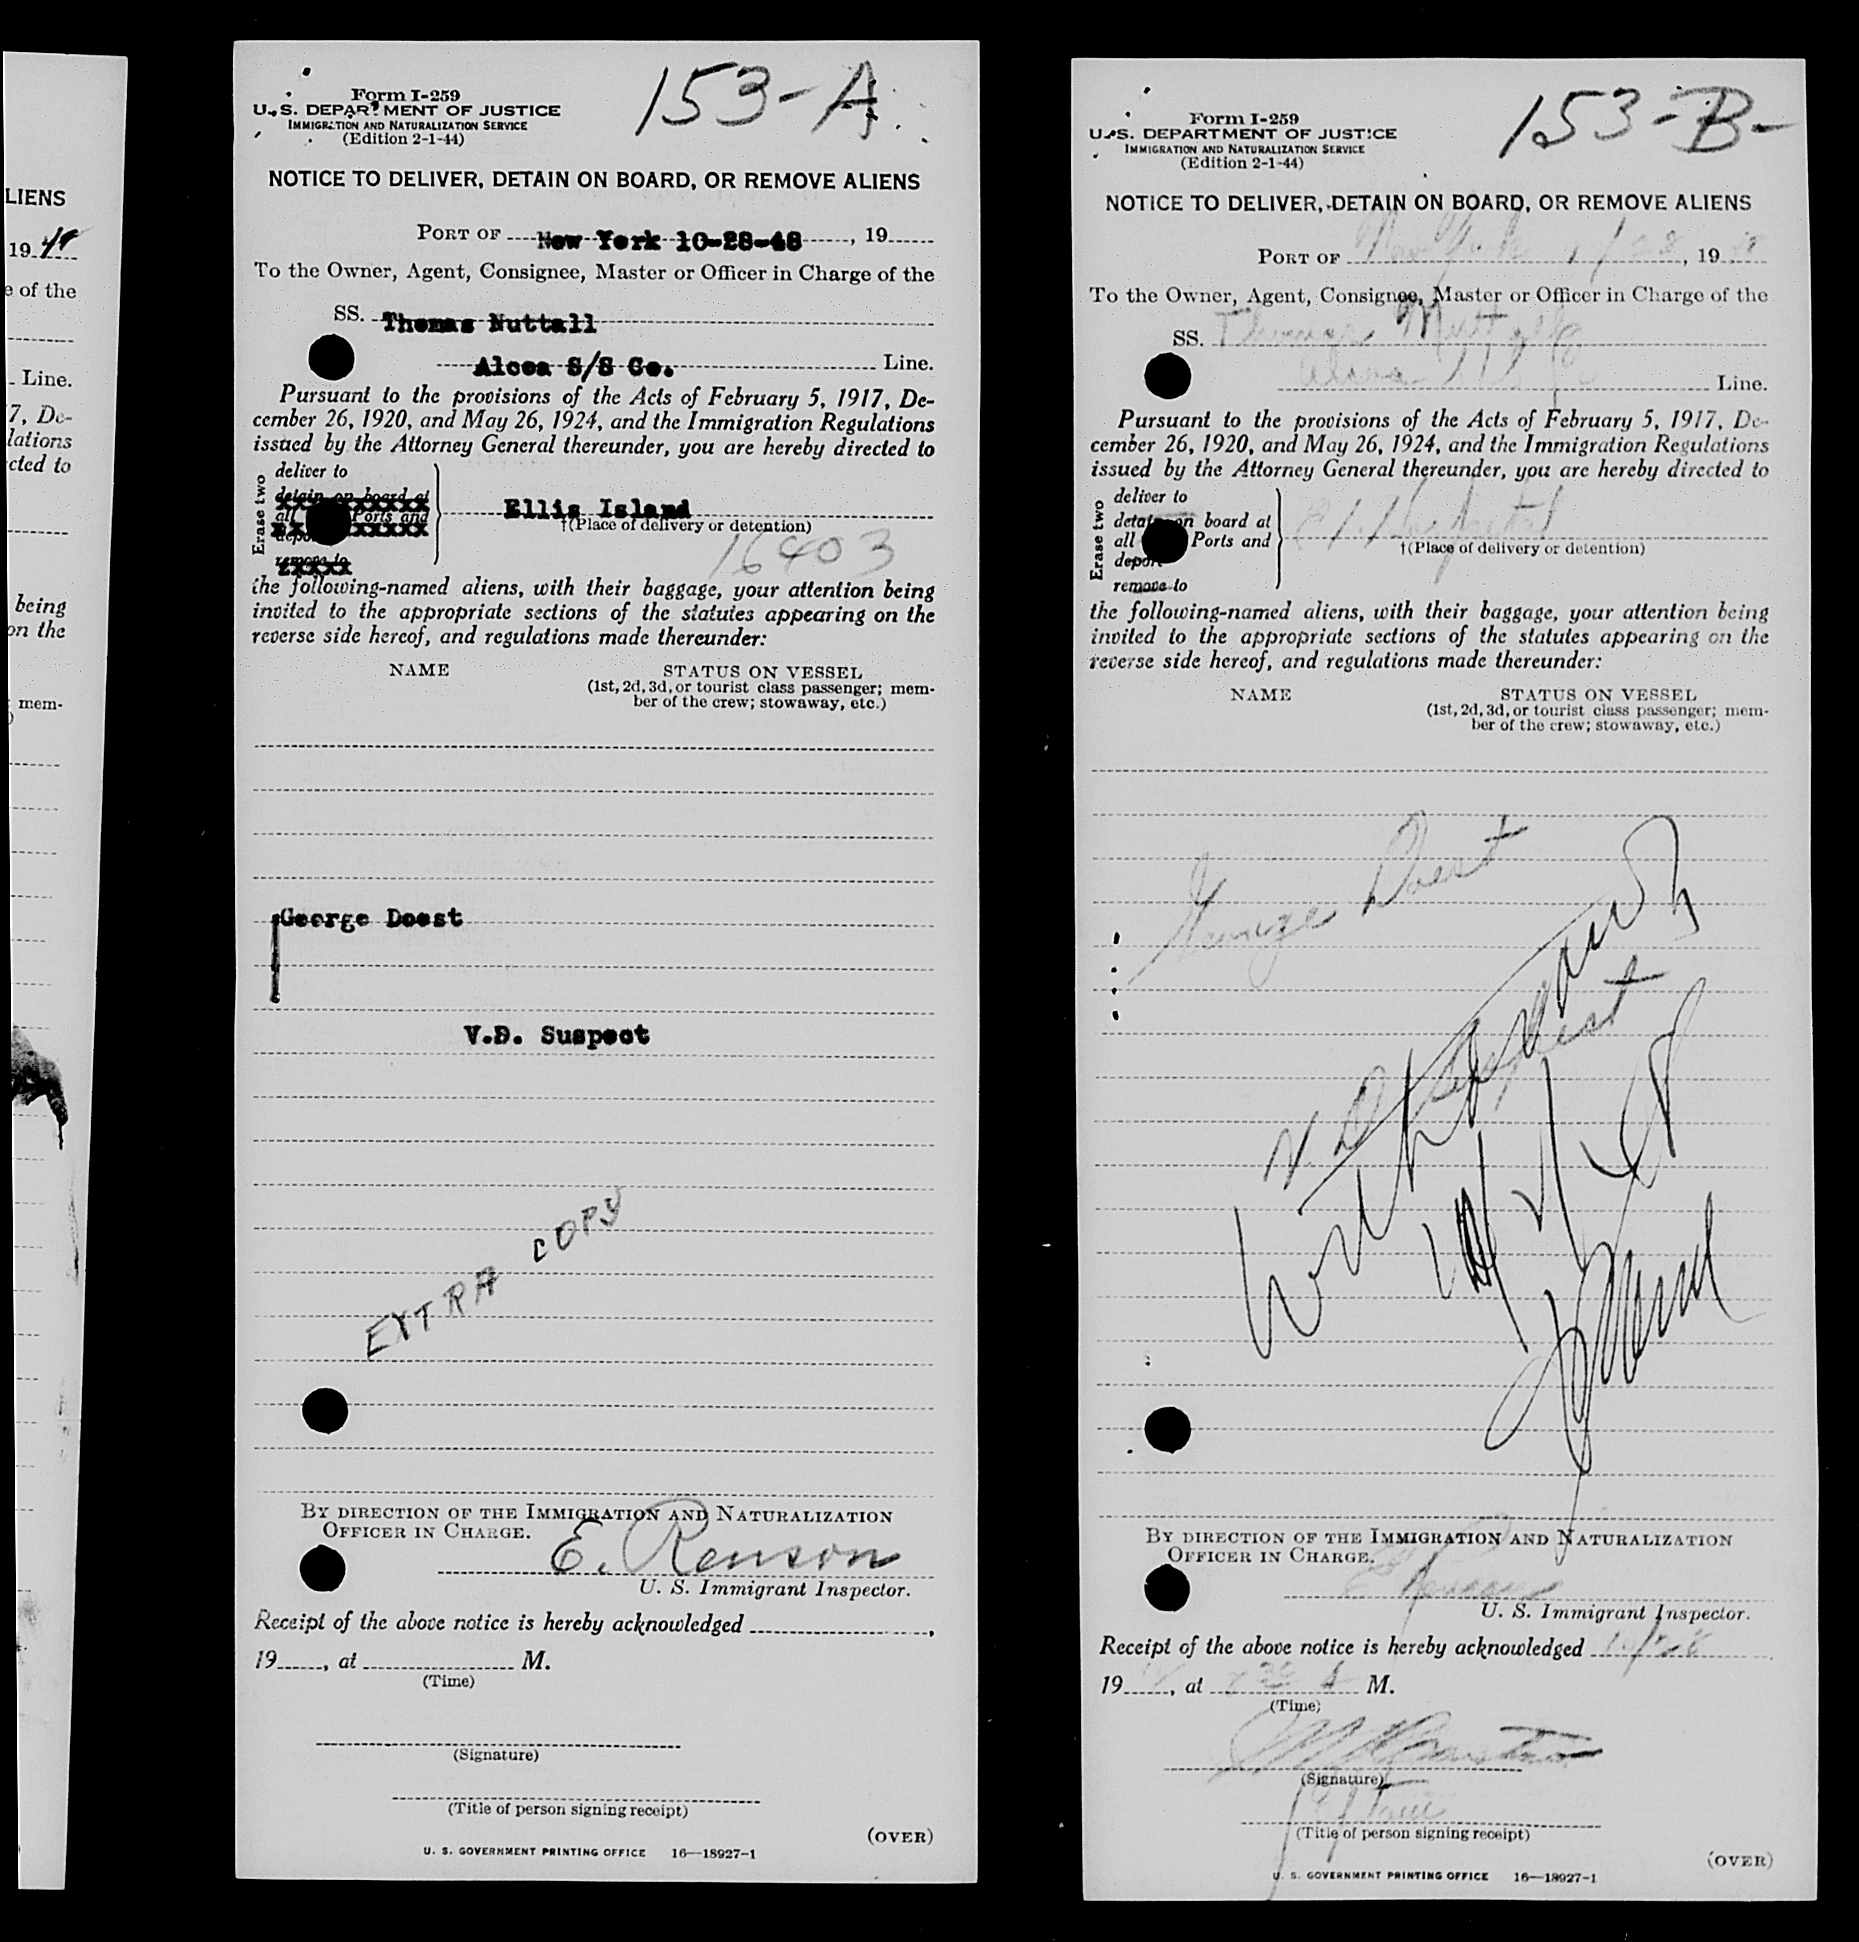 LIENS
19 48
e of the
Line.
7, De-
lations
cted to
being
on the
mem-
153-A
Form I-259
U. S. DEPARTMENT OF JUSTICE
IMMIGRATION AND NATURALIZATION SERVICE
(Edition 2-1-44)
NOTICE TO DELIVER, DETAIN ON BOARD, OR REMOVE ALIENS
PORT OF New York 10-28-48, 19
To the Owner, Agent, Consignee, Master or Officer in Charge of the
SS. Thomas Nuttall
Alcoa S/S Co. Line.
Pursuant to the provisions of the Acts of February 5, 1917, De-
cember 26, 1920, and May 26, 1924, and the Immigration Regulations
issued by the Attorney General thereunder, you are hereby directed to
Erase two
deliver to
detain on board at
all Ports and
depo
remove to
Ellis Island
†(Place of delivery or detention)
16403
the following-named aliens, with their baggage, your attention being
invited to the appropriate sections of the statutes appearing on the
reverse side hereof, and regulations made thereunder:
NAME STATUS ON VESSEL
(1st, 2d, 3d, or tourist class passenger; mem-
ber of the crew; stowaway, etc.)
George Doest
V.D. Suspect
EXTRA COPY
BY DIRECTION OF THE IMMIGRATION AND NATURALIZATION
OFFICER IN CHARGE.
E. Renson
U. S. Immigrant Inspector.
Receipt of the above notice is hereby acknowledged ,
19 , at M.
(Time)
(Signature)
(Title of person signing receipt)
(OVER)
U. S. GOVERNMENT PRINTING OFFICE 16—18927-1
153-B-
Form I-259
U. S. DEPARTMENT OF JUSTICE
IMMIGRATION AND NATURALIZATION SERVICE
(Edition 2-1-44)
NOTICE TO DELIVER, DETAIN ON BOARD, OR REMOVE ALIENS
PORT OF New York , 19
To the Owner, Agent, Consignee, Master or Officer in Charge of the
SS. Thomas Nuttall
Alcoa Line.
Pursuant to the provisions of the Acts of February 5, 1917, De-
cember 26, 1920, and May 26, 1924, and the Immigration Regulations
issued by the Attorney General thereunder, you are hereby directed to
Erase two
deliver to
detain on board at
all Ports and
deport
remove to
Hospital
†(Place of delivery or detention)
the following-named aliens, with their baggage, your attention being
invited to the appropriate sections of the statutes appearing on the
reverse side hereof, and regulations made thereunder:
NAME STATUS ON VESSEL
(1st, 2d, 3d, or tourist class passenger; mem-
ber of the crew; stowaway, etc.)
George Doest
V. D. Suspect
BY DIRECTION OF THE IMMIGRATION AND NATURALIZATION
OFFICER IN CHARGE.
E Renson
U. S. Immigrant Inspector.
Receipt of the above notice is hereby acknowledged 10/28
19 , at M.
(Time)
(Signature)
(Title of person signing receipt)
(OVER)
U. S. GOVERNMENT PRINTING OFFICE 16—18927-1